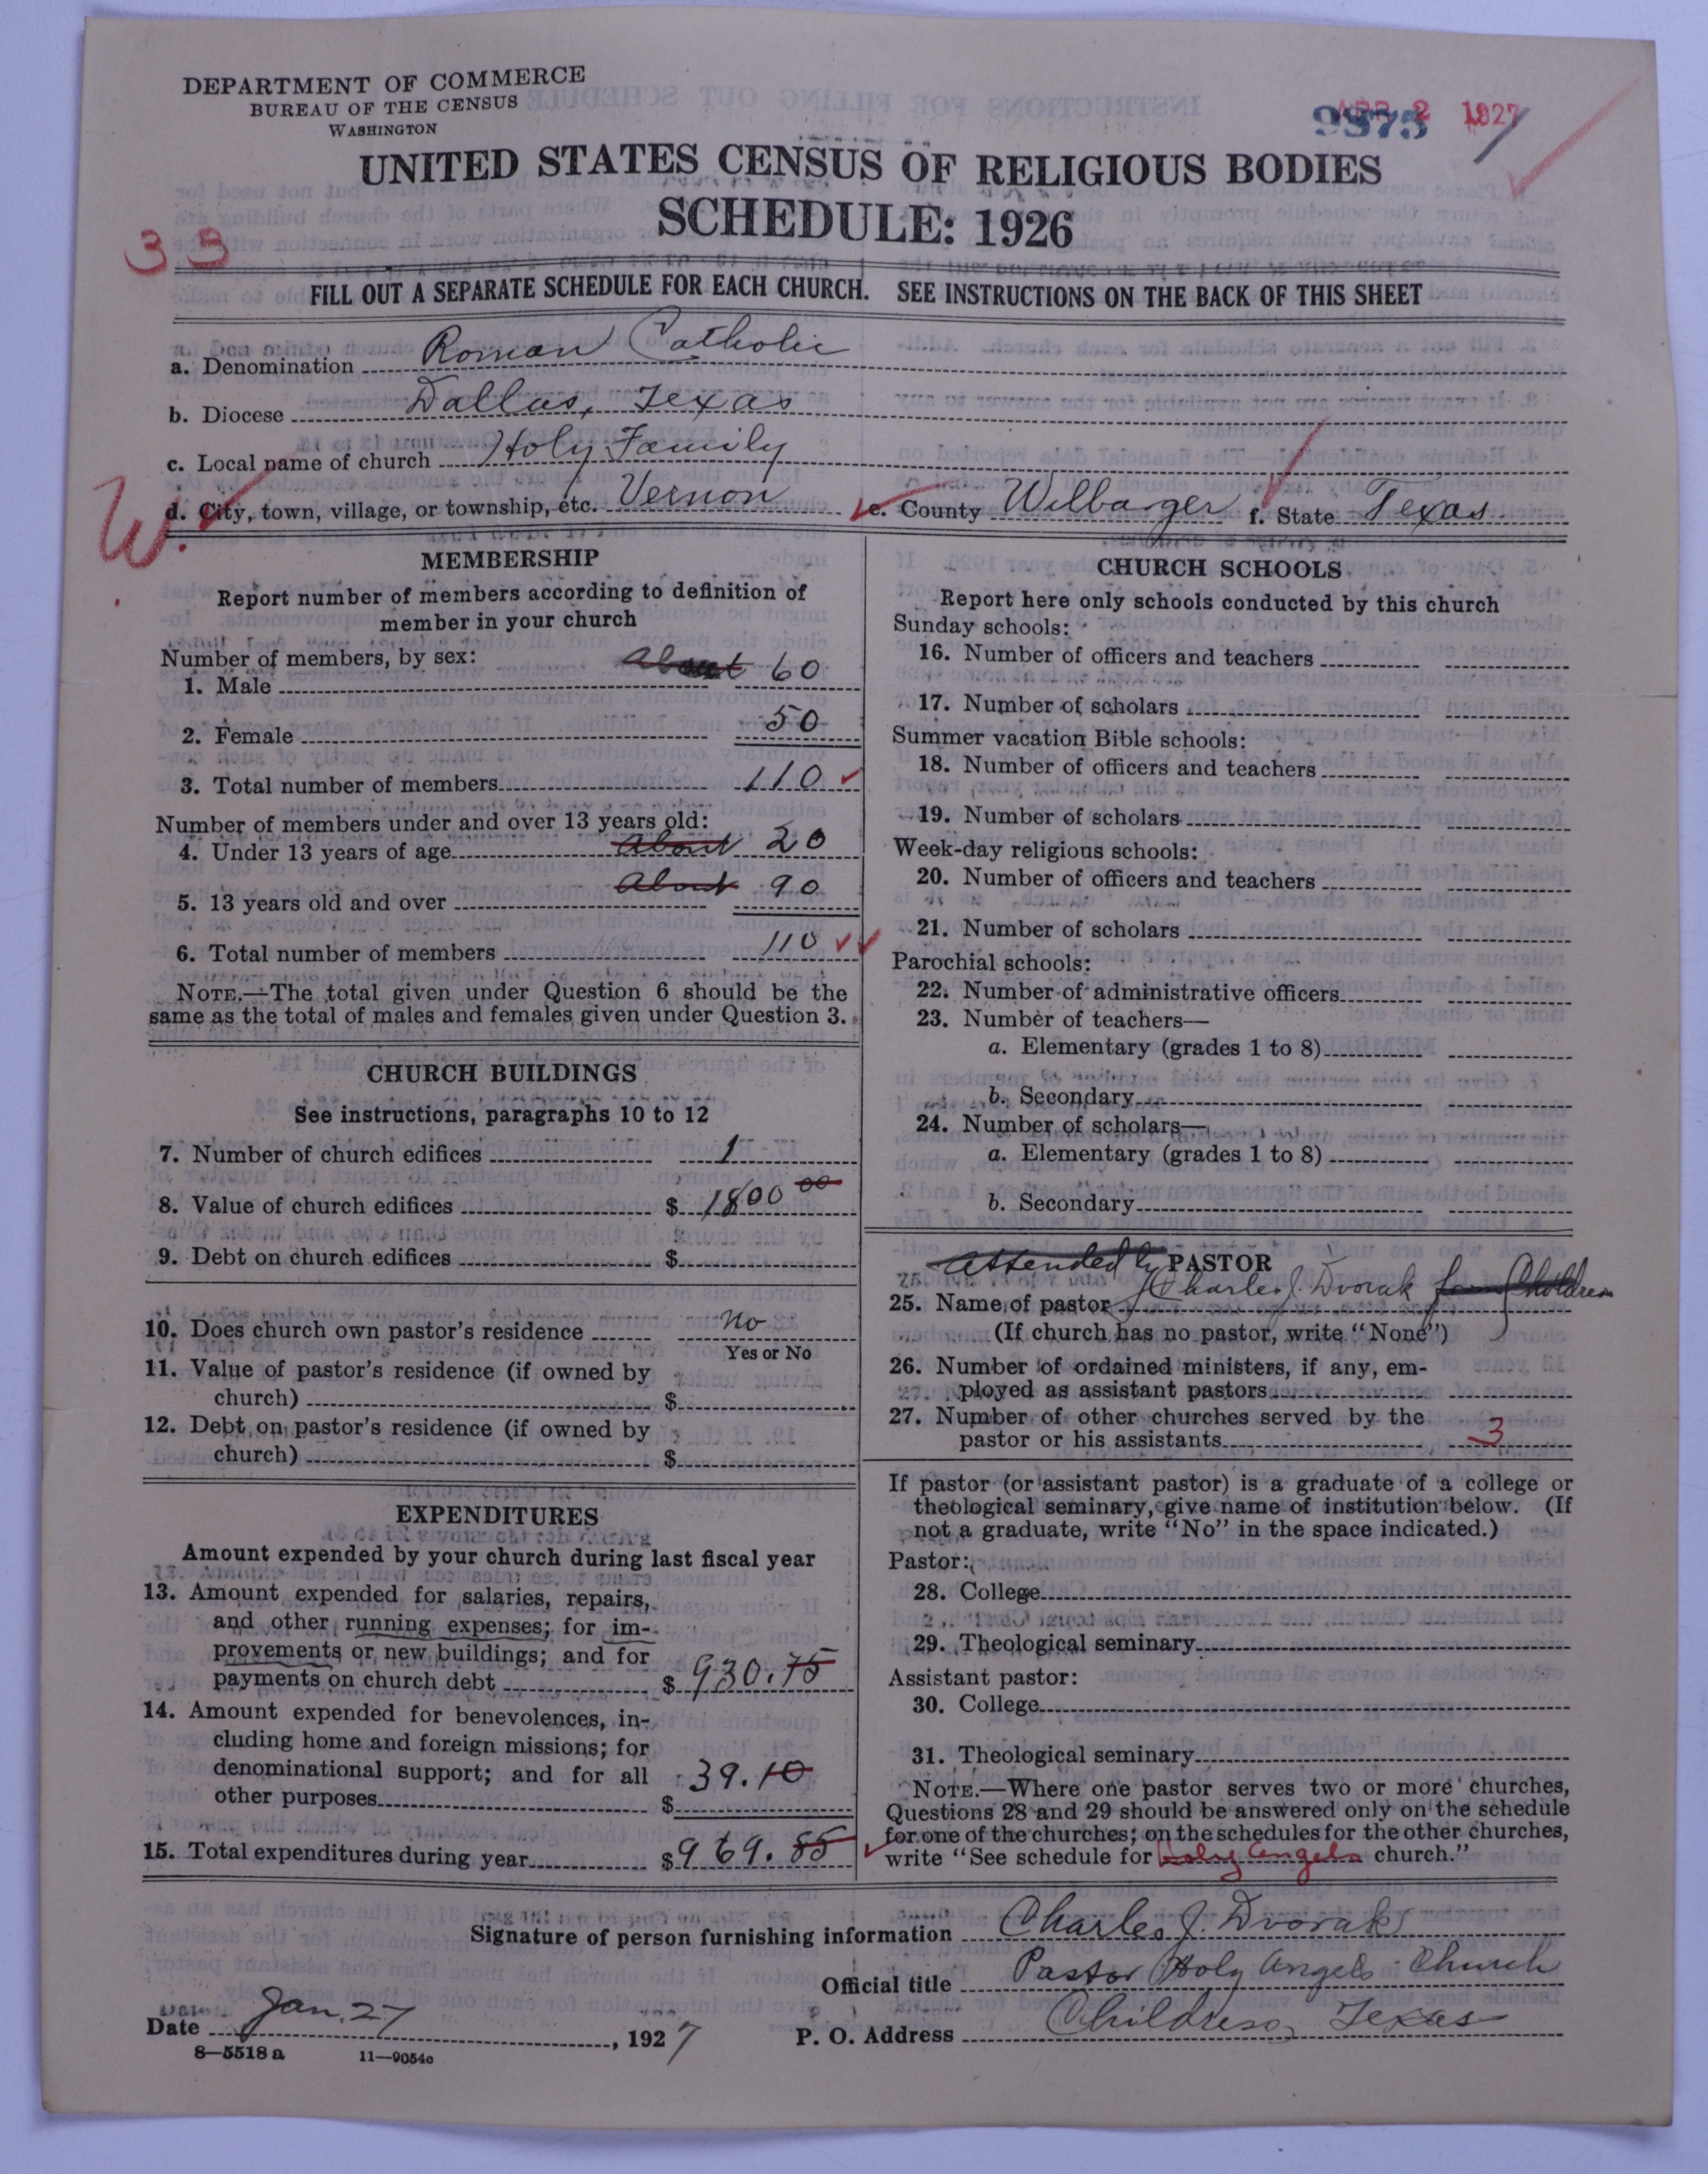 DEPARTMENT OF COMMERCE
BUREAU OF THE CENSUS
WASHINGTON
APR 2 1927
9875
UNITED STATES CENSUS OF RELIGIOUS BODIES
SCHEDULE: 1926
33
FILL OUT A SEPARATE SCHEDULE FOR EACH CHURCH. SEE INSTRUCTIONS ON THE BACK OF THIS SHEET
a. Denomination Roman Catholic
b. Diocese Dallas, Texas
c. Local name of church Holy Family
W.
d. City, town, village, or township, etc. Vernon e. County Wilbarger f. State Texas
MEMBERSHIP
Report number of members according to definition of
member in your church
Number of members, by sex:
1. Male About 60
2. Female 50
3. Total number of members 110
Number of members under and over 13 years old:
4. Under 13 years of age About 20
5. 13 years old and over About 90
6. Total number of members 110
NOTE.—The total given under Question 6 should be the
same as the total of males and females given under Question 3.
CHURCH BUILDINGS
See instructions, paragraphs 10 to 12
7. Number of church edifices 1
8. Value of church edifices $ 1800 00
9. Debt on church edifices $
10. Does church own pastor's residence No
Yes or No
11. Value of pastor's residence (if owned by
church) $
12. Debt on pastor's residence (if owned by
church) $
EXPENDITURES
Amount expended by your church during last fiscal year
13. Amount expended for salaries, repairs,
and other running expenses; for im-
provements or new buildings; and for
payments on church debt $ 930.75
14. Amount expended for benevolences, in-
cluding home and foreign missions; for
denominational support; and for all
other purposes $ 39.10
15. Total expenditures during year $ 969.85
CHURCH SCHOOLS
Report here only schools conducted by this church
Sunday schools:
16. Number of officers and teachers
17. Number of scholars
Summer vacation Bible schools:
18. Number of officers and teachers
19. Number of scholars
Week-day religious schools:
20. Number of officers and teachers
21. Number of scholars
Parochial schools:
22. Number of administrative officers
23. Number of teachers—
a. Elementary (grades 1 to 8)
b. Secondary
24. Number of scholars—
a. Elementary (grades 1 to 8)
b. Secondary
Attended by PASTOR
25. Name of pastor Charles J. Dvorak from Childress
(If church has no pastor, write "None")
26. Number of ordained ministers, if any, em-
ployed as assistant pastors
27. Number of other churches served by the
pastor or his assistants 3
If pastor (or assistant pastor) is a graduate of a college or
theological seminary, give name of institution below. (If
not a graduate, write "No" in the space indicated.)
Pastor:
28. College
29. Theological seminary
Assistant pastor:
30. College
31. Theological seminary
NOTE.—Where one pastor serves two or more churches,
Questions 28 and 29 should be answered only on the schedule
for one of the churches; on the schedules for the other churches,
write "See schedule for Holy Angels church."
Signature of person furnishing information Charles J. Dvorak
Official title Pastor Holy Angels Church
Date Jan. 27, 1927 P. O. Address Childress, Texas
8—5518 a 11—9054c